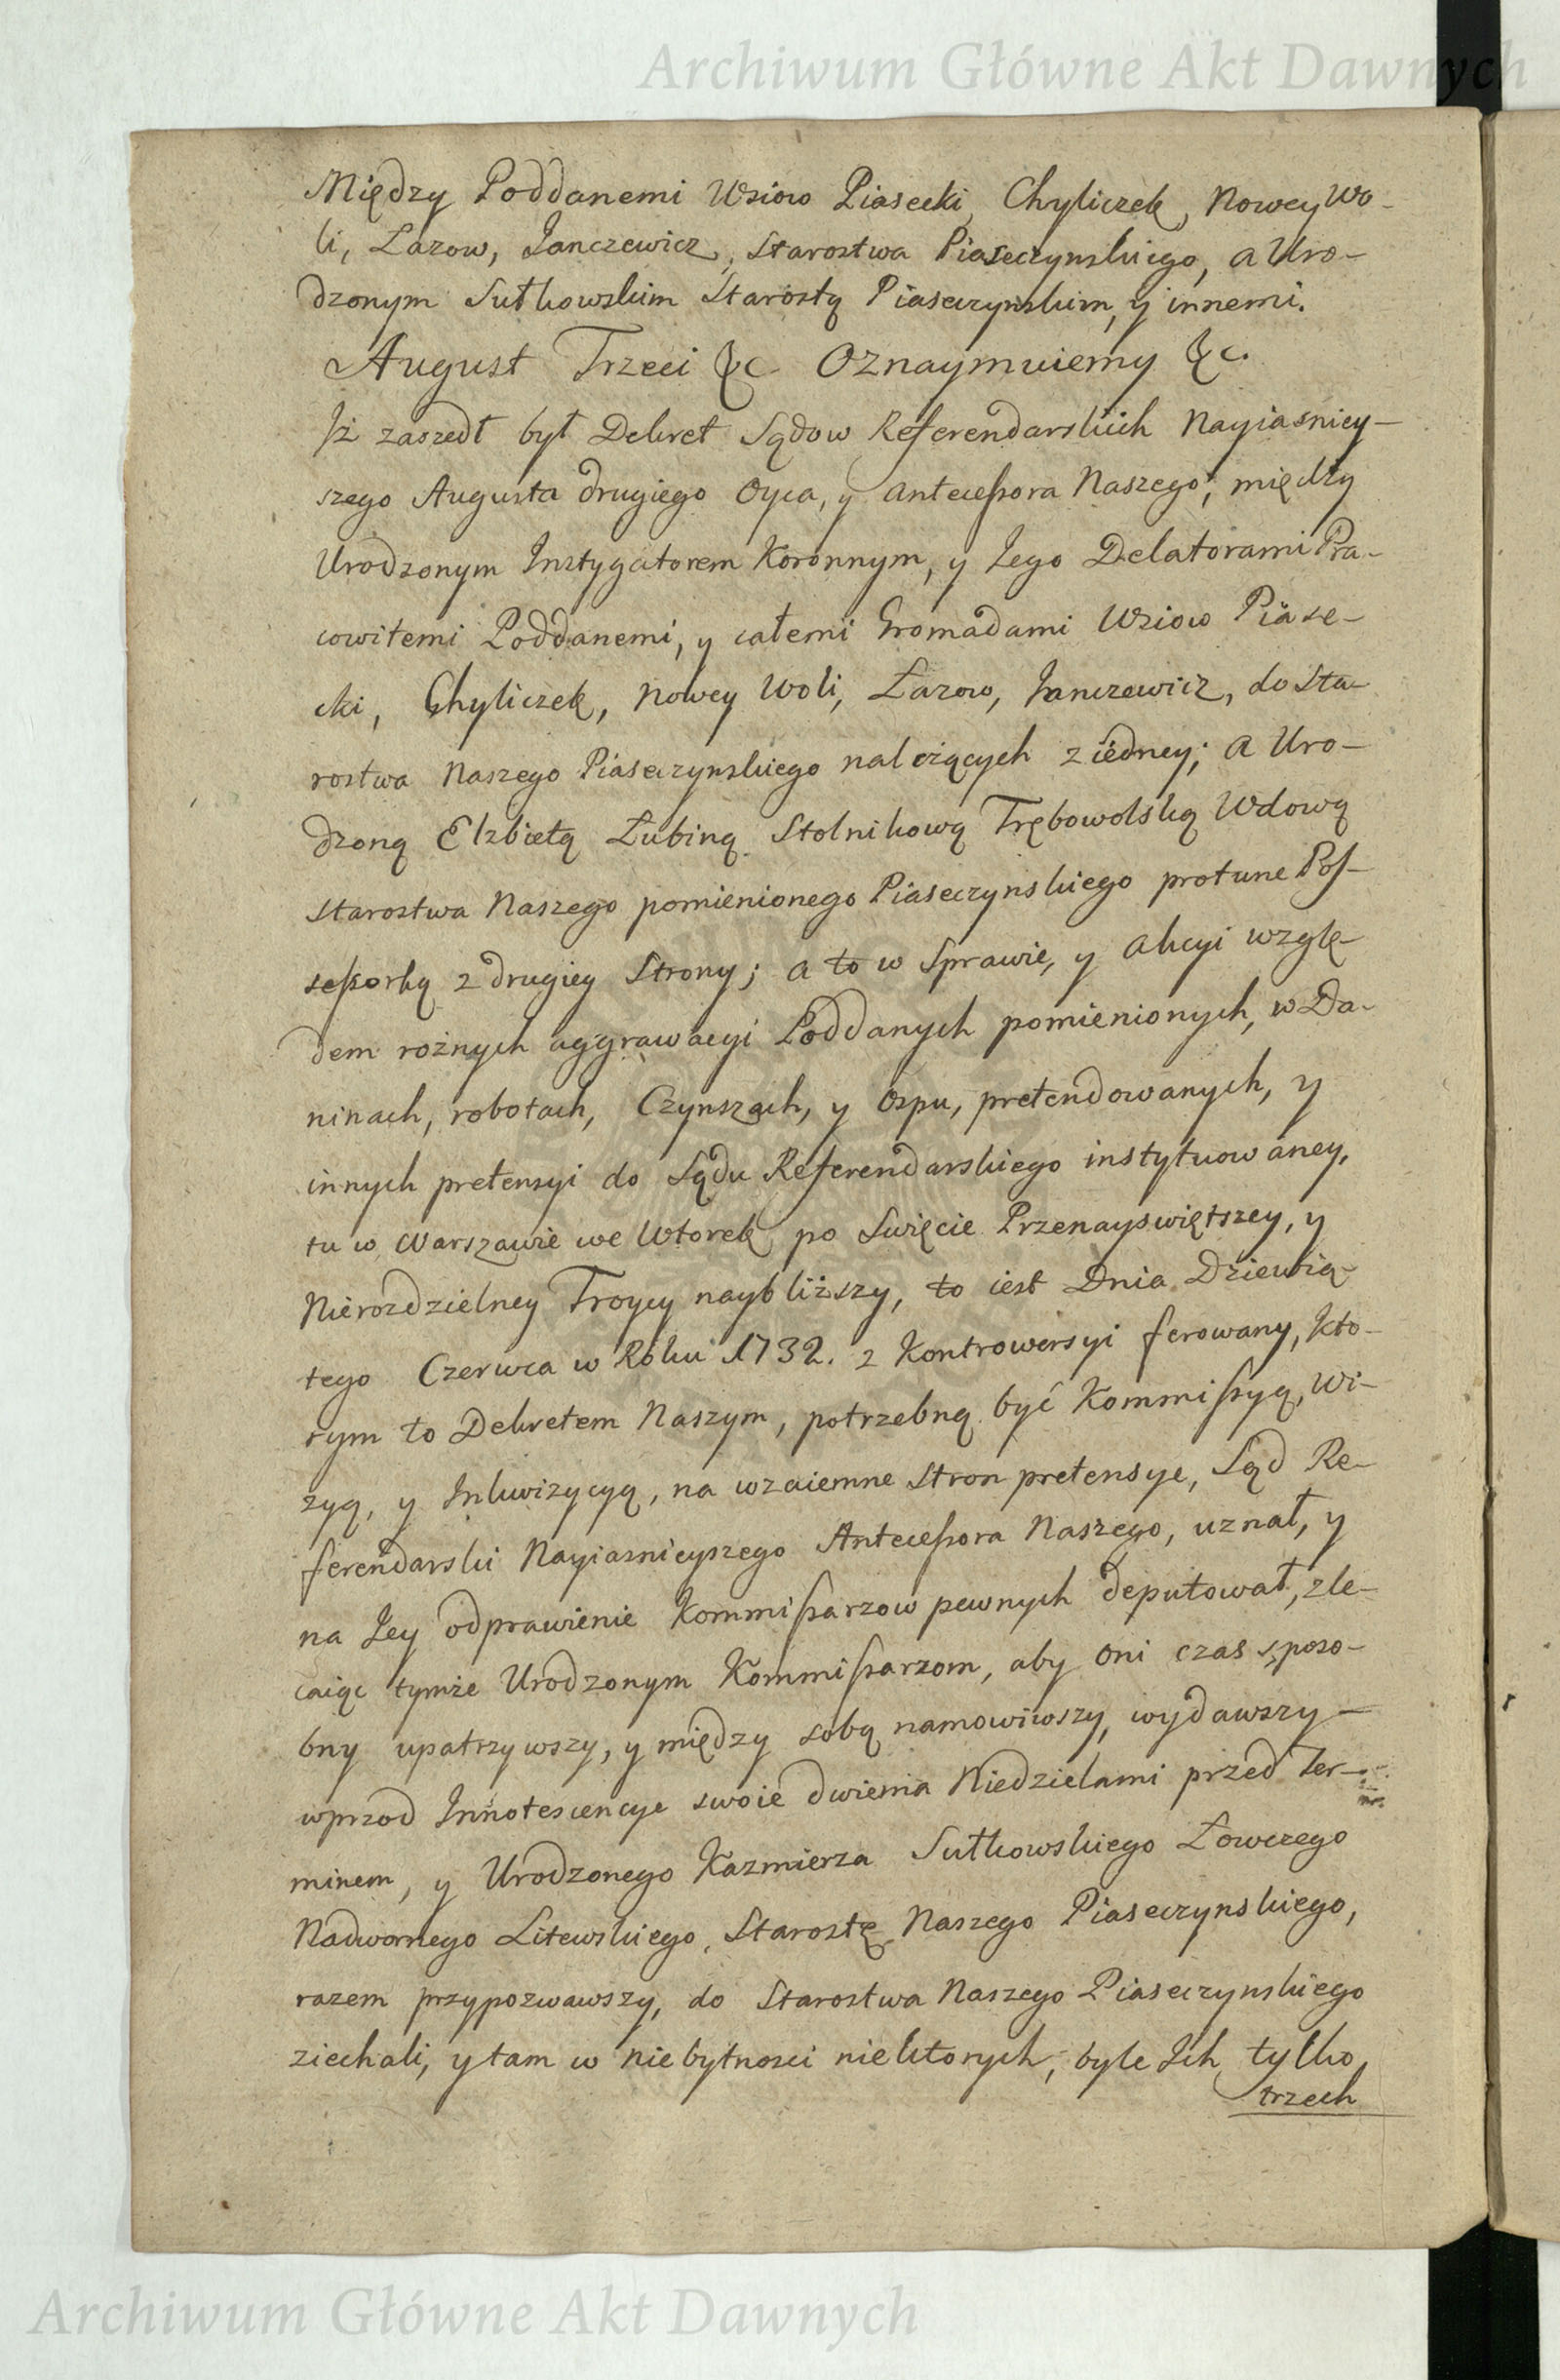 Archiwum Główne Akt Dawnych
Między Poddanemi Wsiow Piasecki, Chyliczek, Nowey Wo-
li, Lazow, Janczewicz, Starostwa Piaseczynskiego, a Uro-
dzonym Sułkowskim Starostą Piaseczynskim, y innemi.
August Trzeci &c. Oznaymuiemy &c.
Iż zaszedł był Dekret Sądow Referendarskich Nayiasniey-
szego Augusta drugiego Oyca, y Antecessora Naszego, między
Urodzonym Instygatorem Koronnym, y Jego Delatorami Pra-
cowitemi Poddanemi, y całemi Gromadami Wsiow Piase-
cki, Chyliczek, Nowey Woli, Łazow, Janczewicz, do Sta-
rostwa Naszego Piaseczynskiego należących z iedney; a Uro-
dzoną Elzbietą Łubiną Stolnikową Trębowolską Wdową
Starostwa Naszego pomienionego Piaseczynskiego protunc Pos-
sessorką z drugiey Strony; a to w Sprawie, y Akcyi wzglę-
dem rożnych aggrawacyi Poddanych pomienionych, w Da-
ninach, robotach, Czynszach, y Ospu, pretendowanych, y
innych pretensyi do Sądu Referendarskiego instytuowaney,
tu w Warszawie we Wtorek po Swięcie Przenayswiętszey, y
Nierozdzielney Troycy naybliższy, to iest Dnia Dziewią-
tego Czerwca w Roku 1732. z Kontrowersyi ferowany, kto-
rym to Dekretem Naszym, potrzebną być Kommissyą, Wi-
zyą, y Inkwizycyą, na wzaiemne Stron pretensye, Sąd Re-
ferendarski Nayiasnieyszego Antecessora Naszego, uznał, y
na Jey odprawienie Kommissarzow pewnych deputował, zle-
caiąc tymże Urodzonym Kommissarzom, aby oni czas sposo-
bny upatrzywszy, y między sobą namowiwszy, wydawszy-
wprzod Innotescencye swoie dwiema Niedzielami przed Ter-
minem, y Urodzonego Kazmierza Sułkowskiego Łowczego
Nadwornego Litewskiego, Starostę Naszego Piaseczynskiego,
razem przypozwawszy, do Starostwa Naszego Piaseczynskiego
ziechali, y tam w niebytnosci niektorych, byle Ich tylko
trzech
Archiwum Główne Akt Dawnych